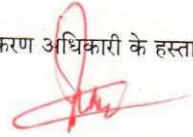 करण अधिकारी के हस्ता